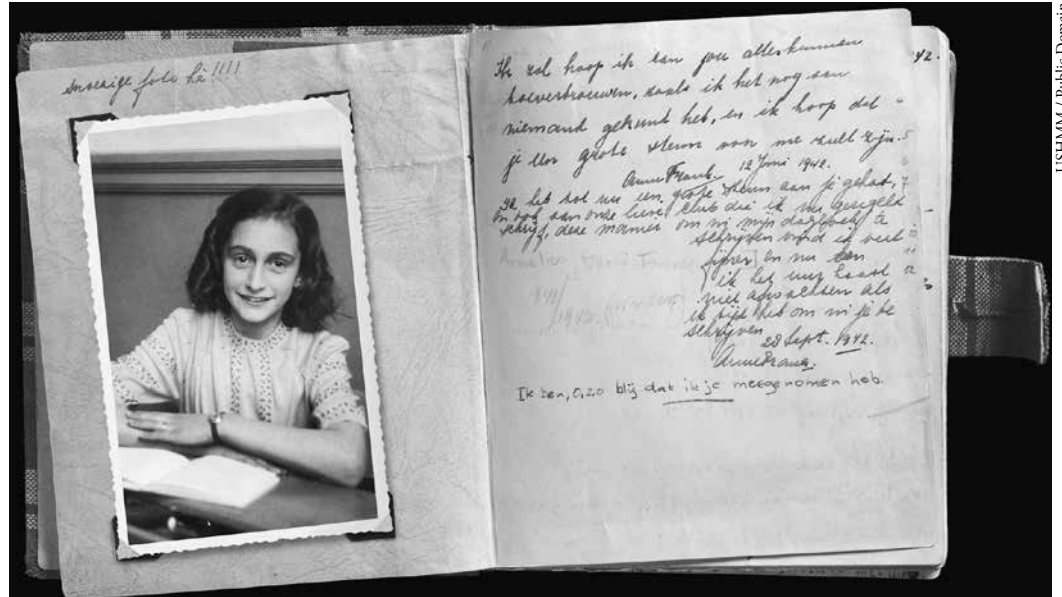 snoezige foto hè!!!!
Ik zal hoop ik aan jou alles kunnen
toevertrouwen, zoals ik het nog aan
niemand gekund heb, en ik hoop dat
je een grote steun voor me zult zijn.
Anne Frank. 12 Juni 1942.
Ik heb tot nu een grote steun aan je gehad,
en ook aan onze lieve club die ik nu geregeld
schrijf, deze manier om in mijn dagboek te
schrijven vind ik veel
fijner en nu kan
ik het uur haast
niet afwachten als
ik tijd heb om in je te
schrijven.
28 Sept. 1942.
Anne Frank.
Ik ben, O, zo blij dat ik je meegenomen heb.
42.
USHMM, Public Domain